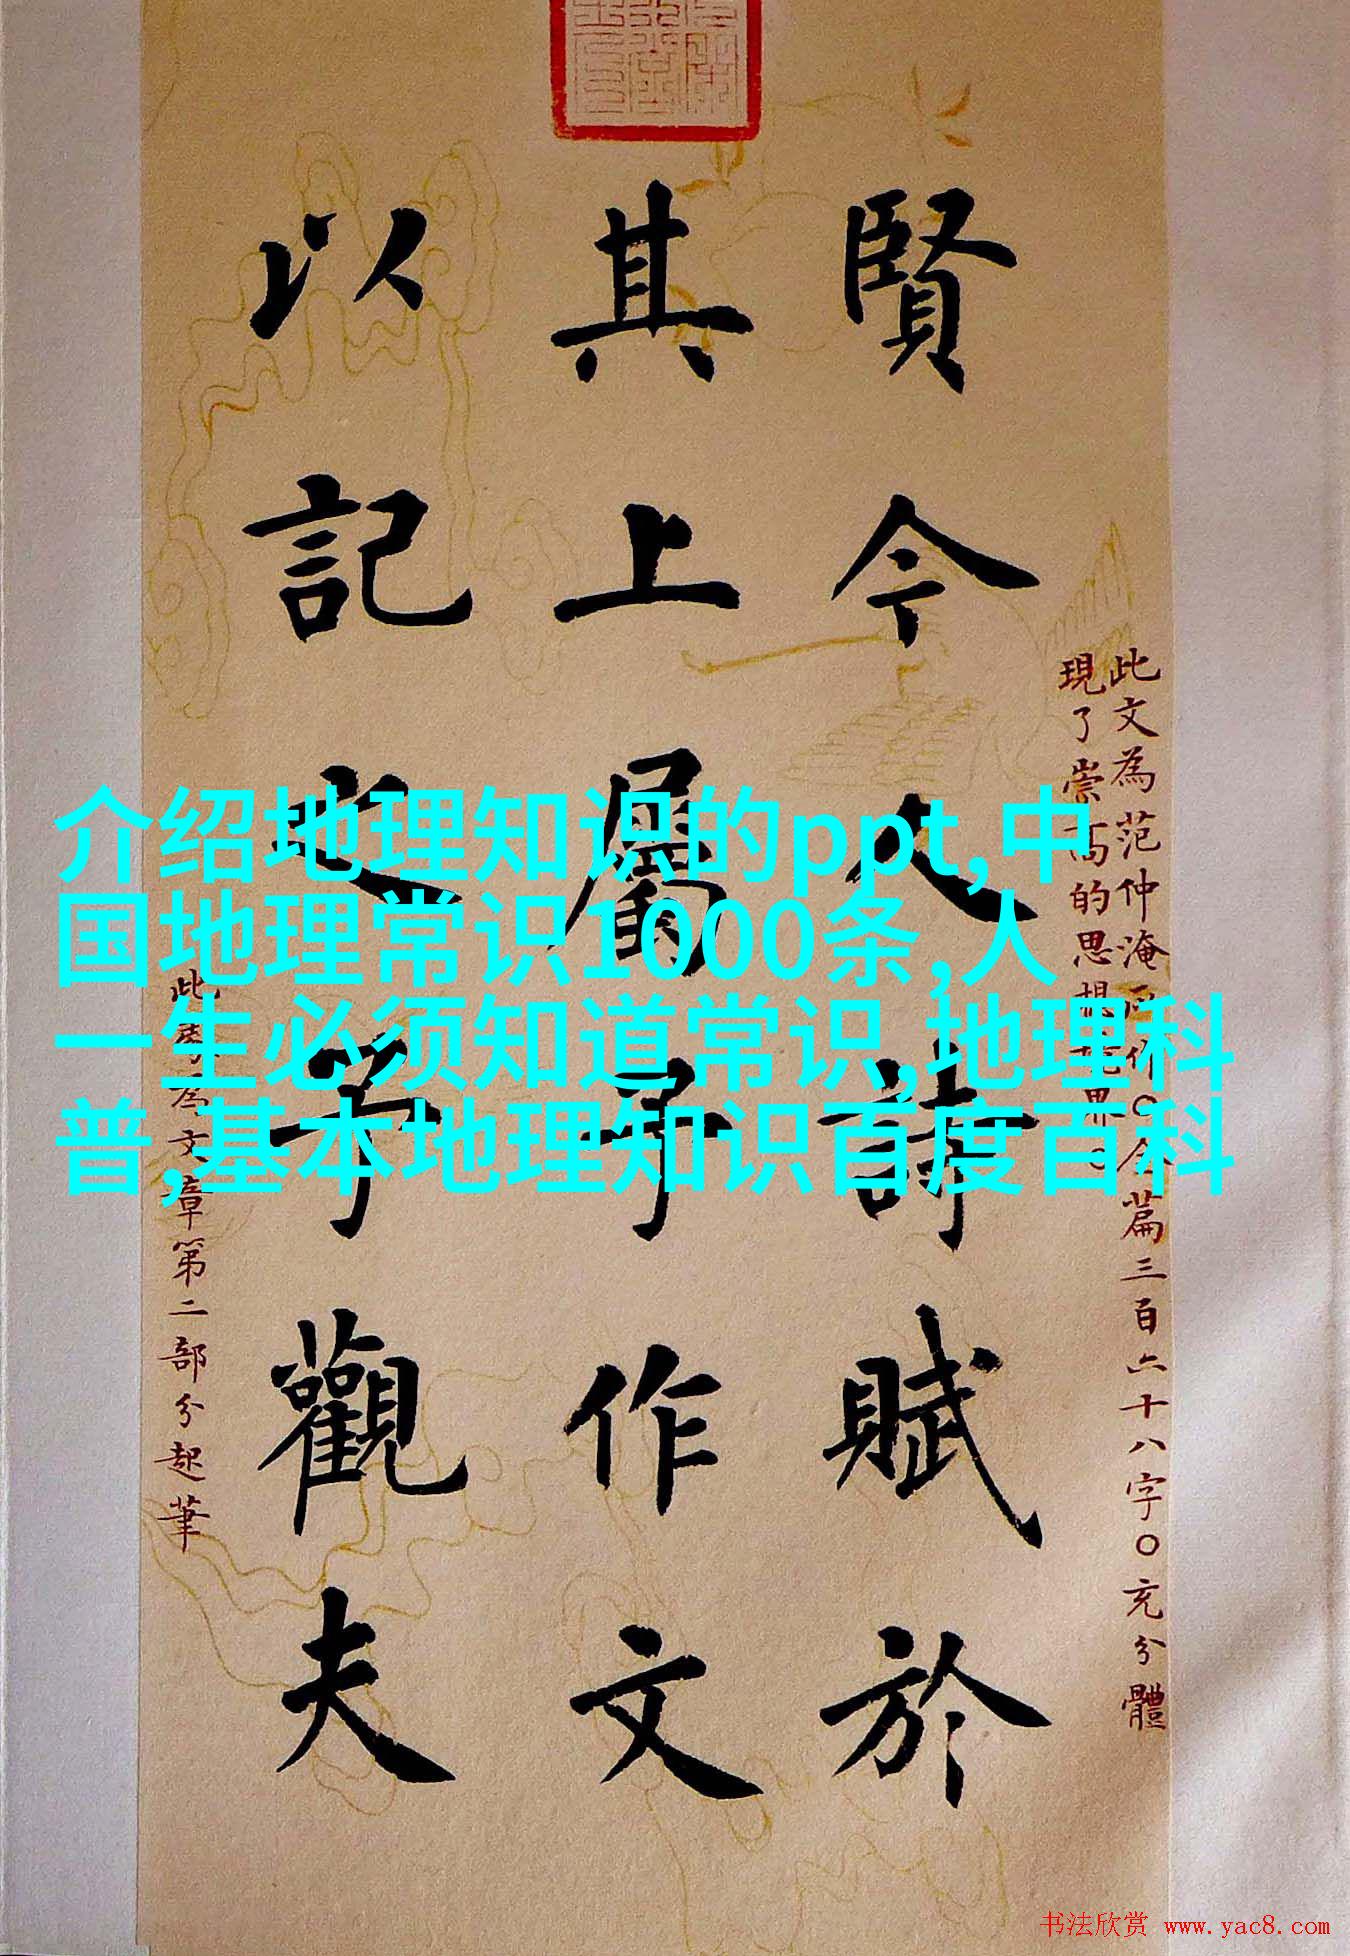 此文為范仲淹所作〇全篇三百六十八字〇充分體
現了崇高的思想境界。
賢今人詩賦於
其上屬予作文
以記之予觀夫
此為文章第二部分起筆
介绍地理知识的ppt,中
国地理常识1000条,人
一生必须知道常识,地理科
普,基本地理知识百度百科
书法欣赏 www.yac8.com